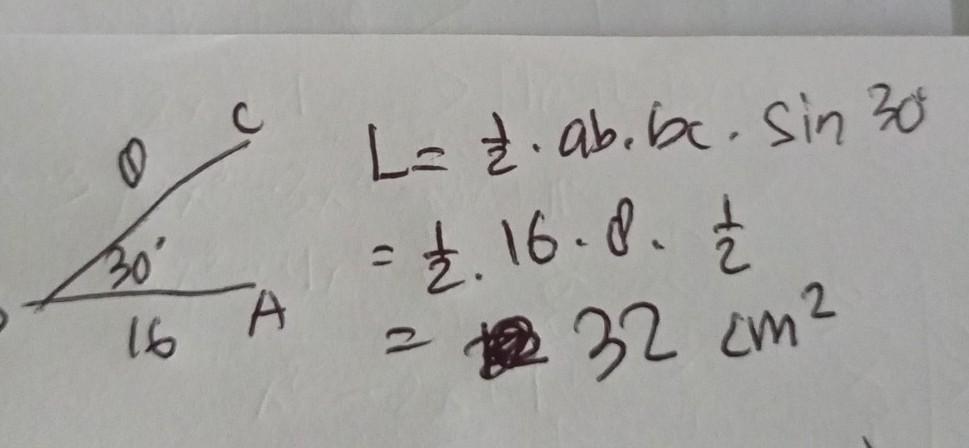 C
8
30°
16
A
L = 1/2 . ab . bc . sin 30°
= 1/2 . 16 . 8 . 1/2
= 32 cm²